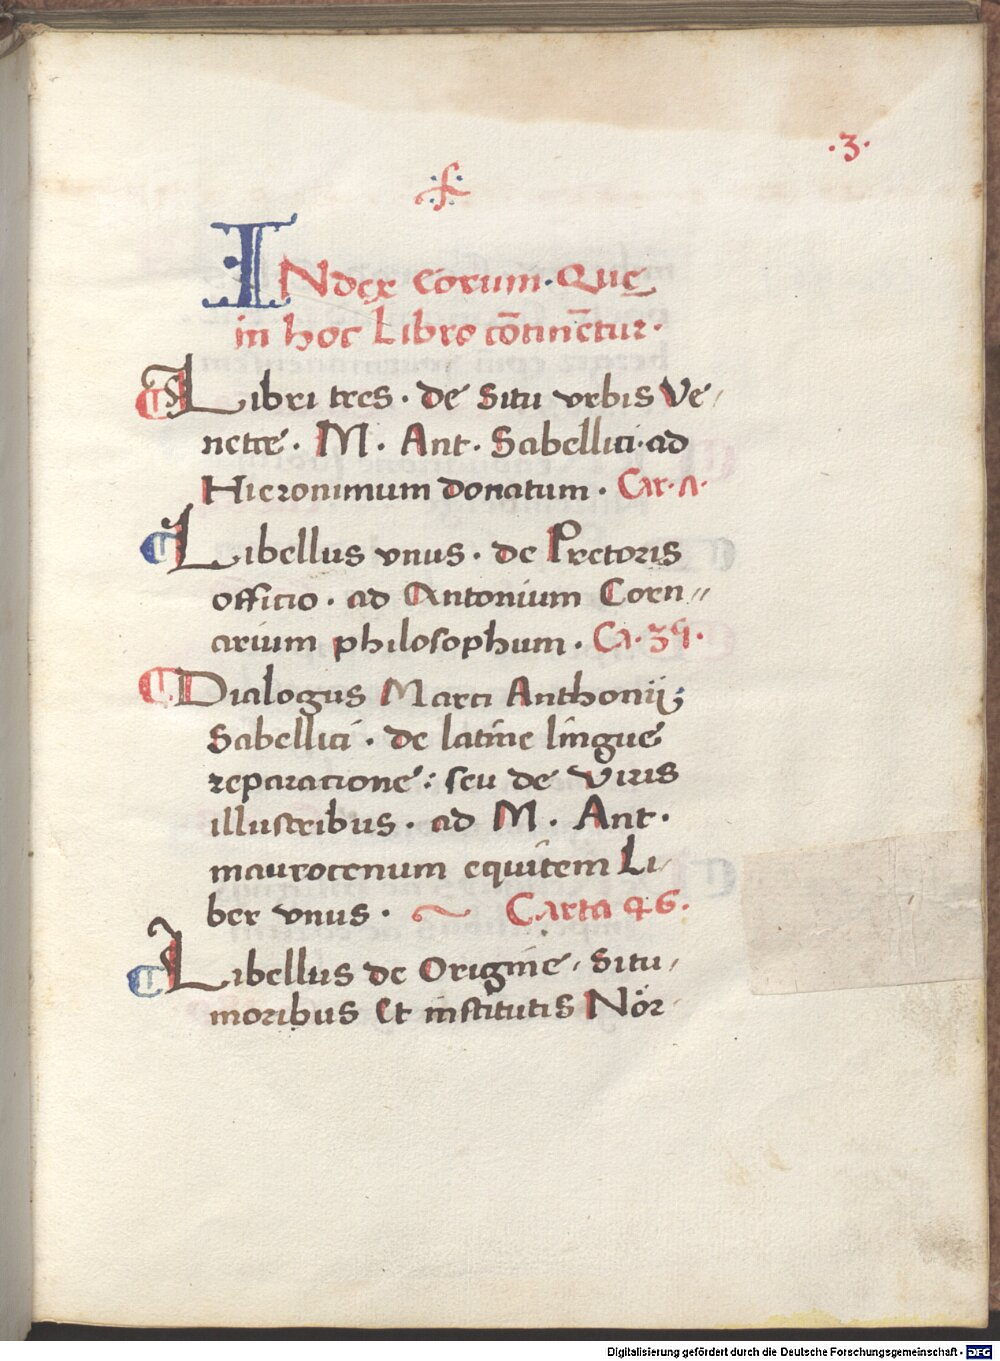 .3.
INdex eorum. Quę
in hoc Libro cōtinētur.
Libri tres. de Situ vrbis Ve/
netæ. M. Ant. Sabellici. ad
Hieronimum donatum. Car. 1.
Libellus vnus. de Pretoris
officio. ad Antonium Corn//
arium philosophum. Ca. 39.
Dialogus Marci Anthonij
Sabellici. de latine lingue
reparacione: seu de viris
illustribus. ad M. Ant.
maurocenum equitem Li/
ber vnus. Carta 46.
Libellus de Origine, Situ,
moribus Et institutis Nör
Digitalisierung gefördert durch die Deutsche Forschungsgemeinschaft - DFG